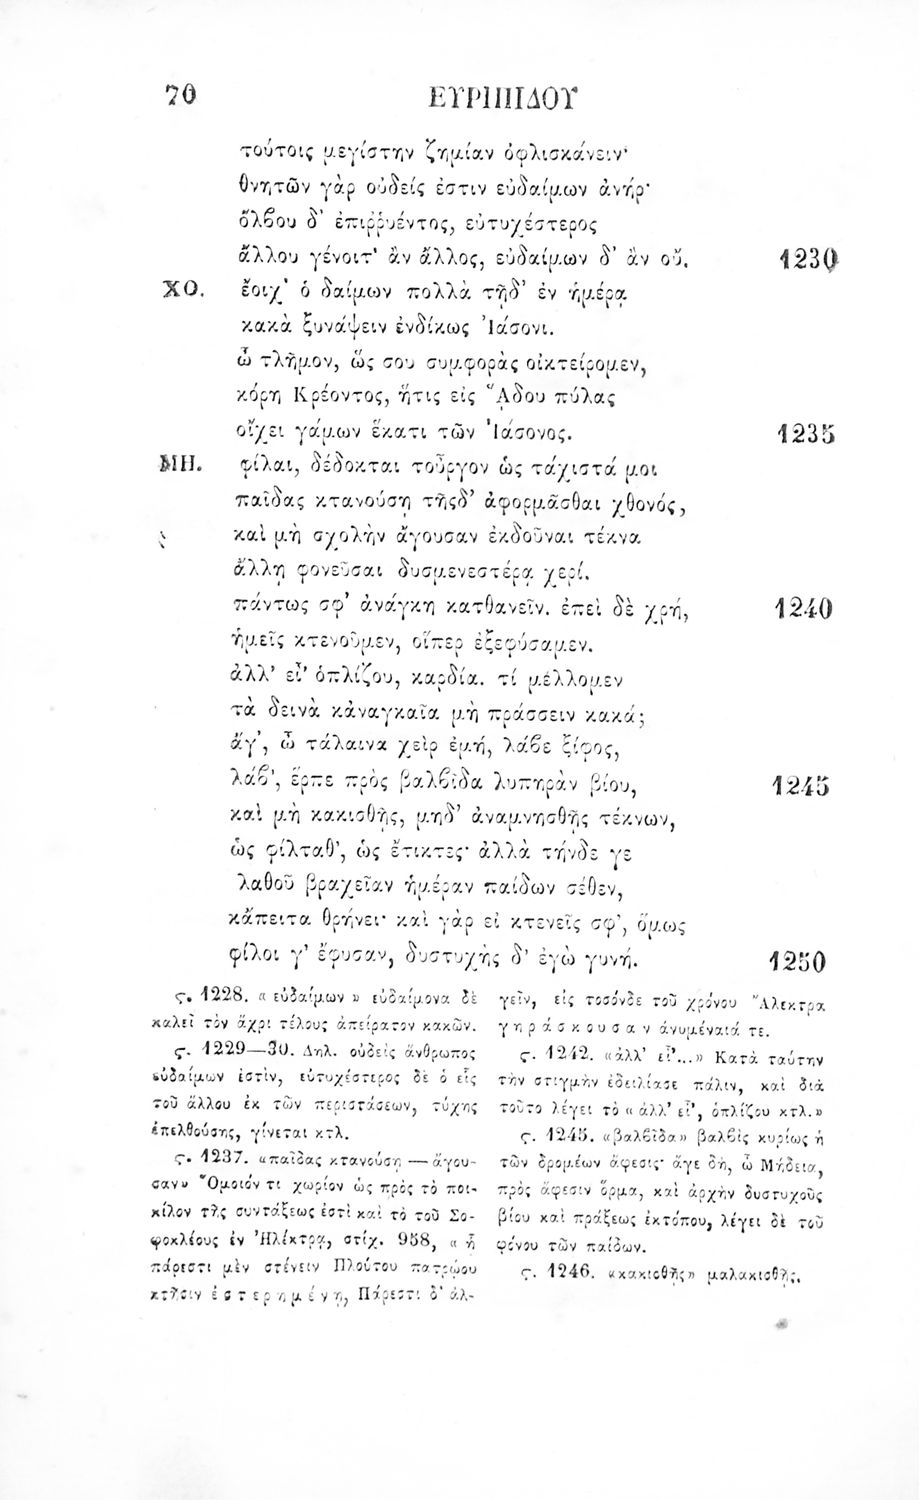 70 ΕΥΡΙΠΙΔΟΥ
τούτοις μεγίστην ζημίαν ὀφλισκάνειν·
θνητῶν γὰρ οὐδείς ἐστιν εὐδαίμων ἀνήρ·
ὄλβου δ' ἐπιῤῥυέντος, εὐτυχέστερος
ἄλλου γένοιτ' ἂν ἄλλος, εὐδαίμων δ' ἂν οὔ. 1230
ΧΟ. ἔοιχ' ὁ δαίμων πολλὰ τῇδ' ἐν ἡμέρᾳ
κακὰ ξυνάψειν ἐνδίκως Ἰάσονι.
ὦ τλῆμον, ὥς σου συμφορὰς οἰκτείρομεν,
κόρη Κρέοντος, ἥτις εἰς Ἅδου πύλας
οἴχει γάμων ἕκατι τῶν Ἰάσονος. 1235
ΜΗ. φίλαι, δέδοκται τοὖργον ὡς τάχιστά μοι
παῖδας κτανούσῃ τῆςδ' ἀφορμᾶσθαι χθονός,
καὶ μὴ σχολὴν ἄγουσαν ἐκδοῦναι τέκνα
ἄλλῃ φονεῦσαι δυσμενεστέρᾳ χερί.
πάντως σφ' ἀνάγκη κατθανεῖν. ἐπεὶ δὲ χρή, 1240
ἡμεῖς κτενοῦμεν, οἵπερ ἐξεφύσαμεν.
ἀλλ' εἶ' ὁπλίζου, καρδία. τί μέλλομεν
τὰ δεινὰ κἀναγκαῖα μὴ πράσσειν κακά;
ἄγ', ὦ τάλαινα χεὶρ ἐμή, λάβε ξίφος,
λάβ', ἕρπε πρὸς βαλβῖδα λυπηρὰν βίου, 1245
καὶ μὴ κακισθῇς, μηδ' ἀναμνησθῇς τέκνων,
ὡς φίλταθ', ὡς ἔτικτες· ἀλλὰ τήνδε γε
λαθοῦ βραχεῖαν ἡμέραν παίδων σέθεν,
κἄπειτα θρήνει· καὶ γὰρ εἰ κτενεῖς σφ', ὅμως
φίλοι γ' ἔφυσαν, δυστυχὴς δ' ἐγὼ γυνή. 1250
ς. 1228. «εὐδαίμων» εὐδαίμονα δὲ
καλεῖ τὸν ἄχρι τέλους ἀπείρατον κακῶν.
ς. 1229—30. Δηλ. οὐδεὶς ἄνθρωπος
εὐδαίμων ἐστὶν, εὐτυχέστερος δὲ ὁ εἷς
τοῦ ἄλλου ἐκ τῶν περιστάσεων, τύχης
ἐπελθούσης, γίνεται κτλ.
ς. 1237. «παῖδας κτανούσῃ — ἄγου-
σαν» Ὅμοιόν τι χωρίον ὡς πρὸς τὸ ποι-
κίλον τῆς συντάξεως ἐστὶ καὶ τὸ τοῦ Σο-
φοκλέους ἐν Ἠλέκτρᾳ, στίχ. 958, «ᾗ
πάρεστι μὲν στένειν Πλούτου πατρῴου
κτῆσιν ἐστερημένῃ, Πάρεστι δ' ἀλ-
γεῖν, εἰς τοσόνδε τοῦ χρόνου Ἄλεκτρα
γηράσκουσαν ἀνυμέναιά τε.
ς. 1242. «ἀλλ' εἶ'...» Κατὰ ταύτην
τὴν στιγμὴν ἐδειλίασε πάλιν, καὶ διὰ
τοῦτο λέγει τὸ «ἀλλ' εἶ', ὁπλίζου κτλ.»
ς. 1245. «βαλβῖδα» βαλβὶς κυρίως ἡ
τῶν δρομέων ἄφεσις· ἄγε δὴ, ὦ Μήδεια,
πρὸς ἄφεσιν ὅρμα, καὶ ἀρχὴν δυστυχοῦς
βίου καὶ πράξεως ἐκτόπου, λέγει δὲ τοῦ
φόνου τῶν παίδων.
ς. 1246. «κακισθῇς» μαλακισθῇς.